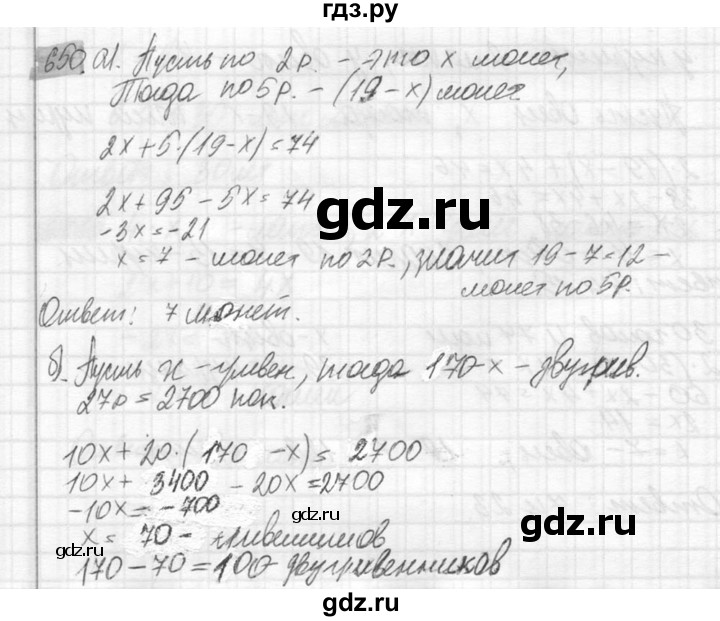 гдз.ру
650. а). Пусть по 2р. - это х монет,
Тогда по 5р. - (19-х) монет
2х+5·(19-х)=74
2х+95-5х=74
-3х=-21
х=7 - монет по 2р., значит 19-7=12 -
монет по 5р.
Ответ: 7 монет.
б). Пусть х - гривен, тогда 170-х - двугрив.
27р = 2700 коп.
10х+20·(170-х)=2700
10х+3400-20х=2700
-10х=-700
х=70 - гривенников
170-70=100 двугривенников
gdz.ru
gdz.ru
gdz.ru
gdz.ru